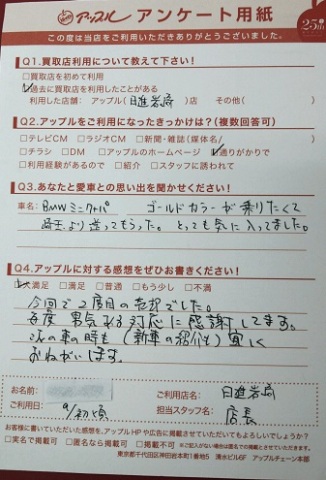 アップル アンケート用紙
25th
この度は当店をご利用いただきありがとうございました。
Q1.買取店利用について教えて下さい!
□買取店を初めて利用
□過去に買取店を利用したことがある
利用した店舗: アップル(日進岩崎)店 その他( )
Q2.アップルをご利用になったきっかけは?(複数回答可)
□テレビCM □ラジオCM □新聞・雑誌(媒体名/ )
□チラシ □DM □アップルのホームページ □通りがかりで
□利用経験があるので □紹介 □スタッフに誘われて
Q3.あなたと愛車との思い出を聞かせください!
車名: BMWミニクーパ ゴールドカラーが乗りたくて
埼玉より送ってもらった。とっても気に入ってました。
Q4.アップルに対する感想をぜひお書きください!
□大満足 □満足 □普通 □もう少し □不満
今回で2度目の売却でした。
毎度 男気ある対応に感謝してます。
次の車の時も(新車の紹介も)宜しく
おねがいします。
お名前:
ご利用日: 9/初頃
ご利用店名: 日進岩崎
担当スタッフ名: 店長
お客様に書いていただいた感想を、アップルHPや広告に掲載させていただいてもよろしいでしょうか?
□実名で掲載可 □匿名なら掲載可 □掲載不可 ※ご記入がない場合は匿名での掲載とさせていただきます。
東京都千代田区神田岩本町1番地5 清水ビル6F アップルチェーン本部